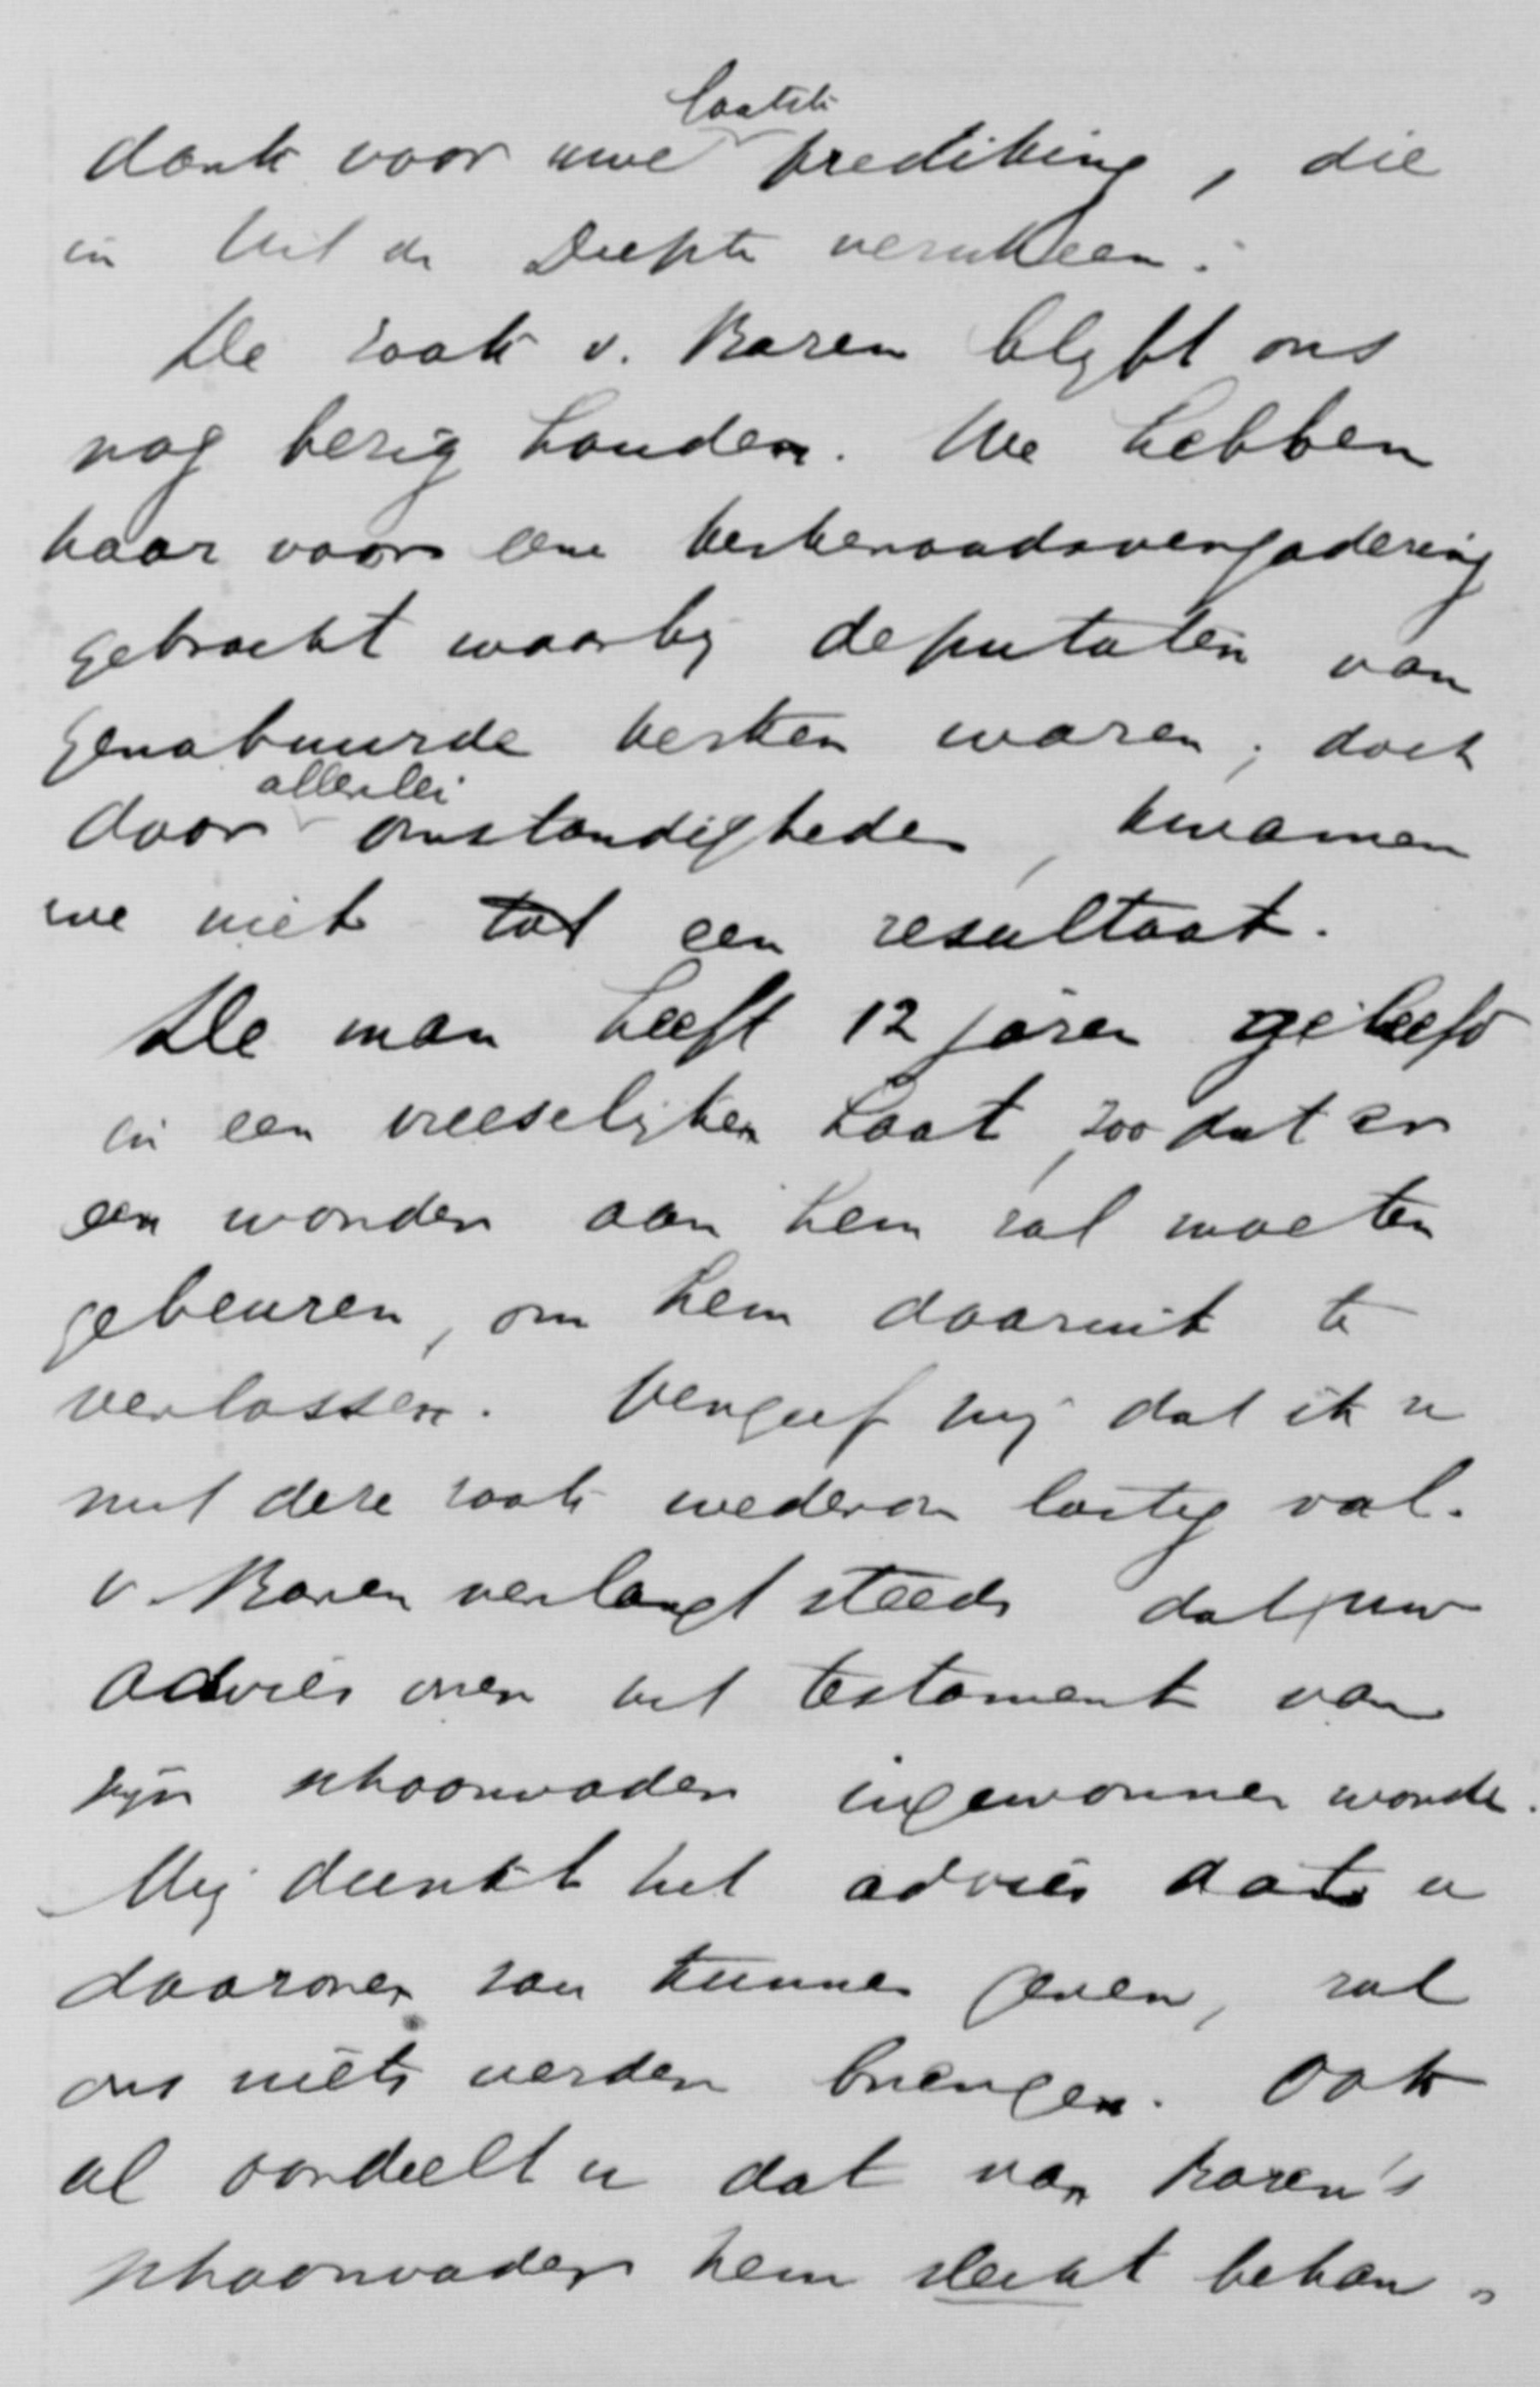 laatste
dank voor uwe prediking, die
in Uit de Diepte verscheen.
De zaak v. Baren blyft ons
nog bezig houden. We hebben
haar voor eene kerkeraadsvergadering
gebracht waarby deputaten van
genabuurde kerken waren; doch
allerlei
door omstandigheden, kwamen
we niet tot een resultaat.
De man heeft 12 jaren geleefd
in een vreeselijken haat, zoodat er
een wonder aan hem zal moeten
gebeuren, om hem daaruit te
verlossen. Vergeef mij dat ik u
met deze zaak wederom lastig val.
v. Baren verlangt steeds dat uw
advies over het testament van
zijn schoonvader ingewonnen worde.
Mij dunkt het advies dat u
daarover zou kunnen geven, zal
ons niets verder brengen. Ook
al oordeelt u dat van Baren's
schoonvader hem slecht behan-